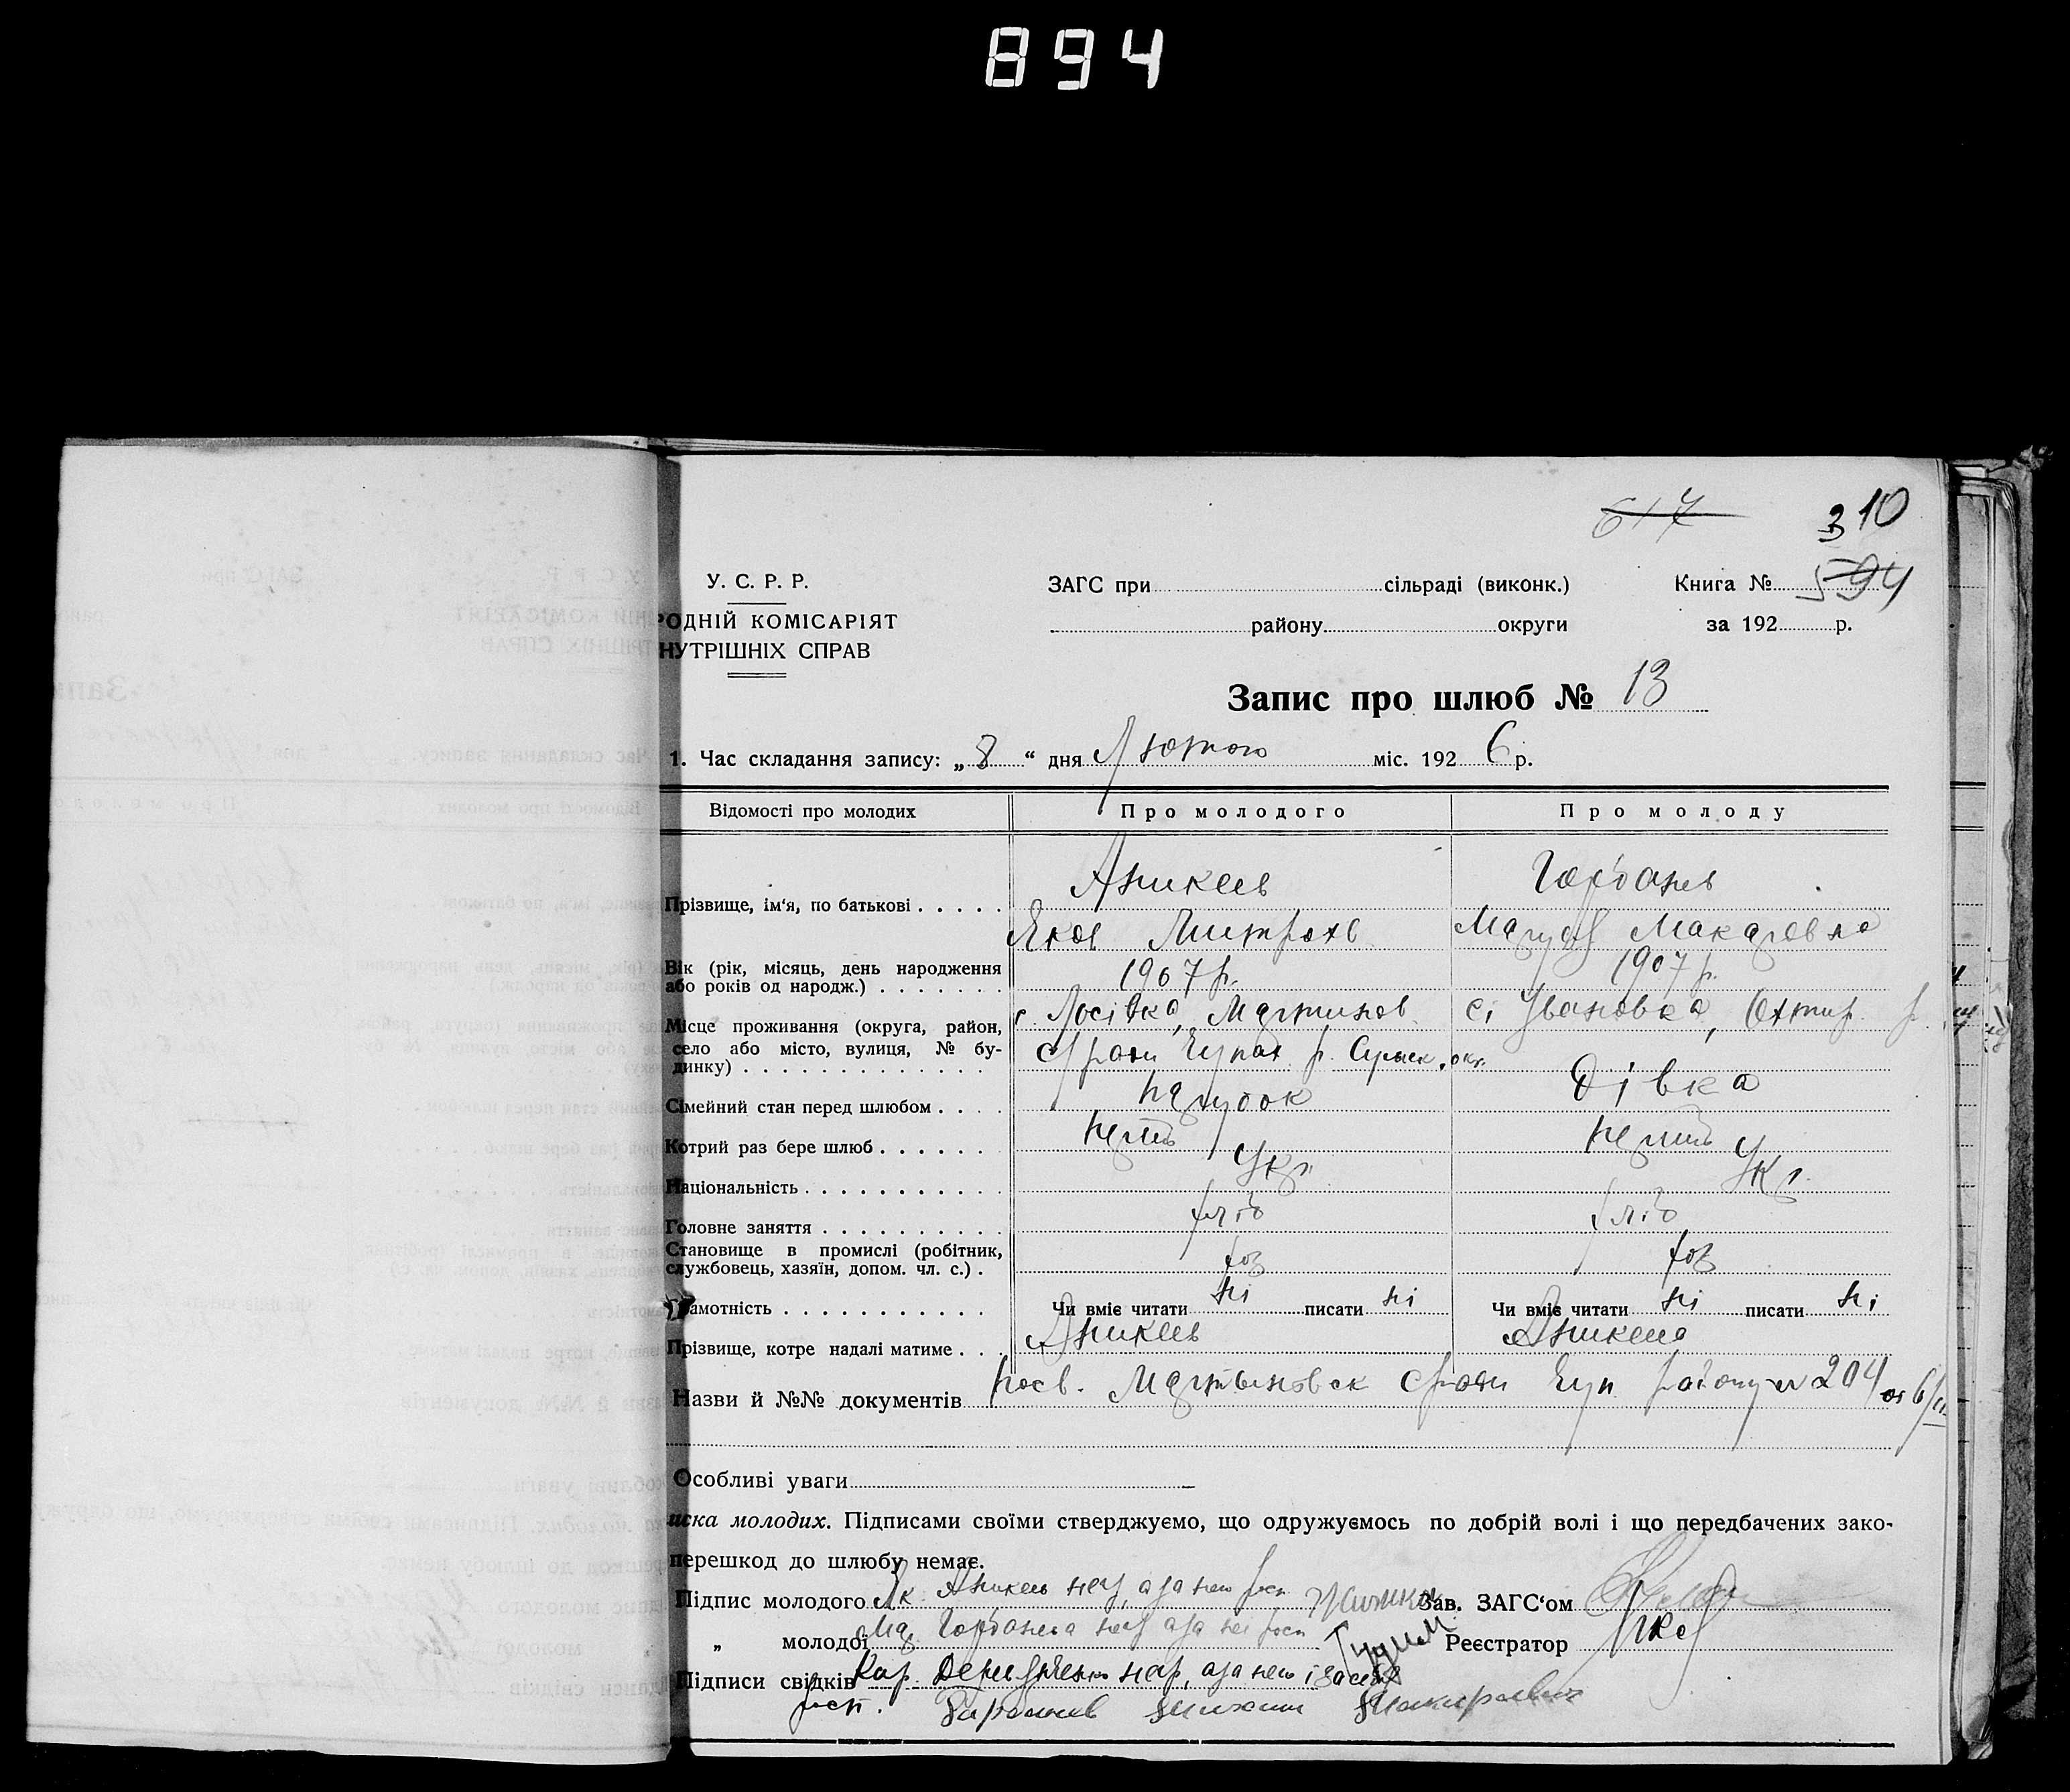 894
617
310
У. С. Р. Р.
ЗАГС при сільраді (виконк.)
Книга № 594
РОДНІЙ КОМІСАРІЯТ
району округи
за 192 р.
НУТРІШНІХ СПРАВ
Запис про шлюб № 13
1. Час складання запису: „ 8 “ дня Лютого міс. 192 6 р.
Відомості про молодих
Про молодого
Про молоду
Прізвище, ім'я, по батькові
Аникеев
Яков Митрохв
Горбаньв
Макаровна
Вік (рік, місяць, день народження
або років од народж.)
1907 р.
1907 р.
Місце проживання (округа, район,
село або місто, вулиця, № бу-
динку)
с. Лосівка, Мартинов.
с/ради Чупах. р. Сумск. окр.
сі Івановка, Охтир. р.
Сімейний стан перед шлюбом
парубок
Дівка
Котрий раз бере шлюб
перший
перший
Національність
Укр.
Укр.
Головне заняття
хліб
хліб
Становище в промислі (робітник,
службовець, хазяїн, допом. чл. с.)
хоз
хоз
Грамотність
Чи вміє читати ні писати ні
Чи вміє читати ні писати ні
Прізвище, котре надалі матиме
Аникеев
Аникеева
Назви й №№ документів посв. Мартыновск с/ради Чуп. району № 204 от 6/II
Особливі уваги
иска молодих. Підписами своїми стверджуємо, що одружуємось по добрій волі і що передбачених зако-
перешкод до шлюбу немає.
Підпис молодого Як. Аникеев неу, а за него росп
Зав. ЗАГС'ом
„ молодої Мар. Горбаньва неу а за неі росп
Реєстратор
Підписи свідків Кар. нар, а за него і за себя
росп.